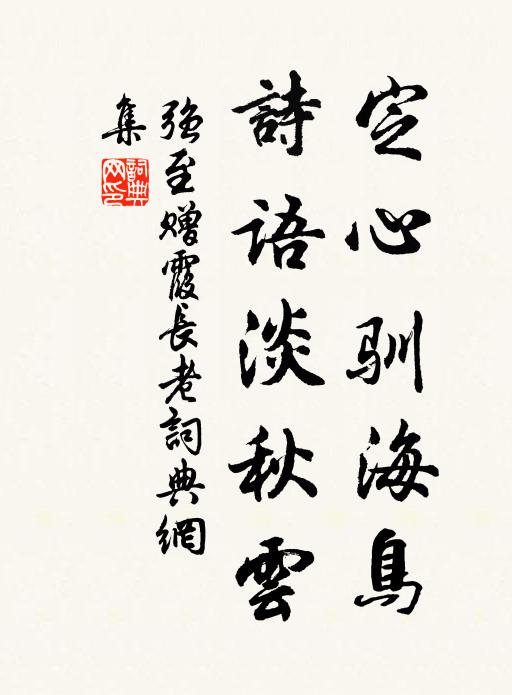 定心驯海鳥
詩語淡秋雲
强至贈霞長老詞典網
集
詞典網印